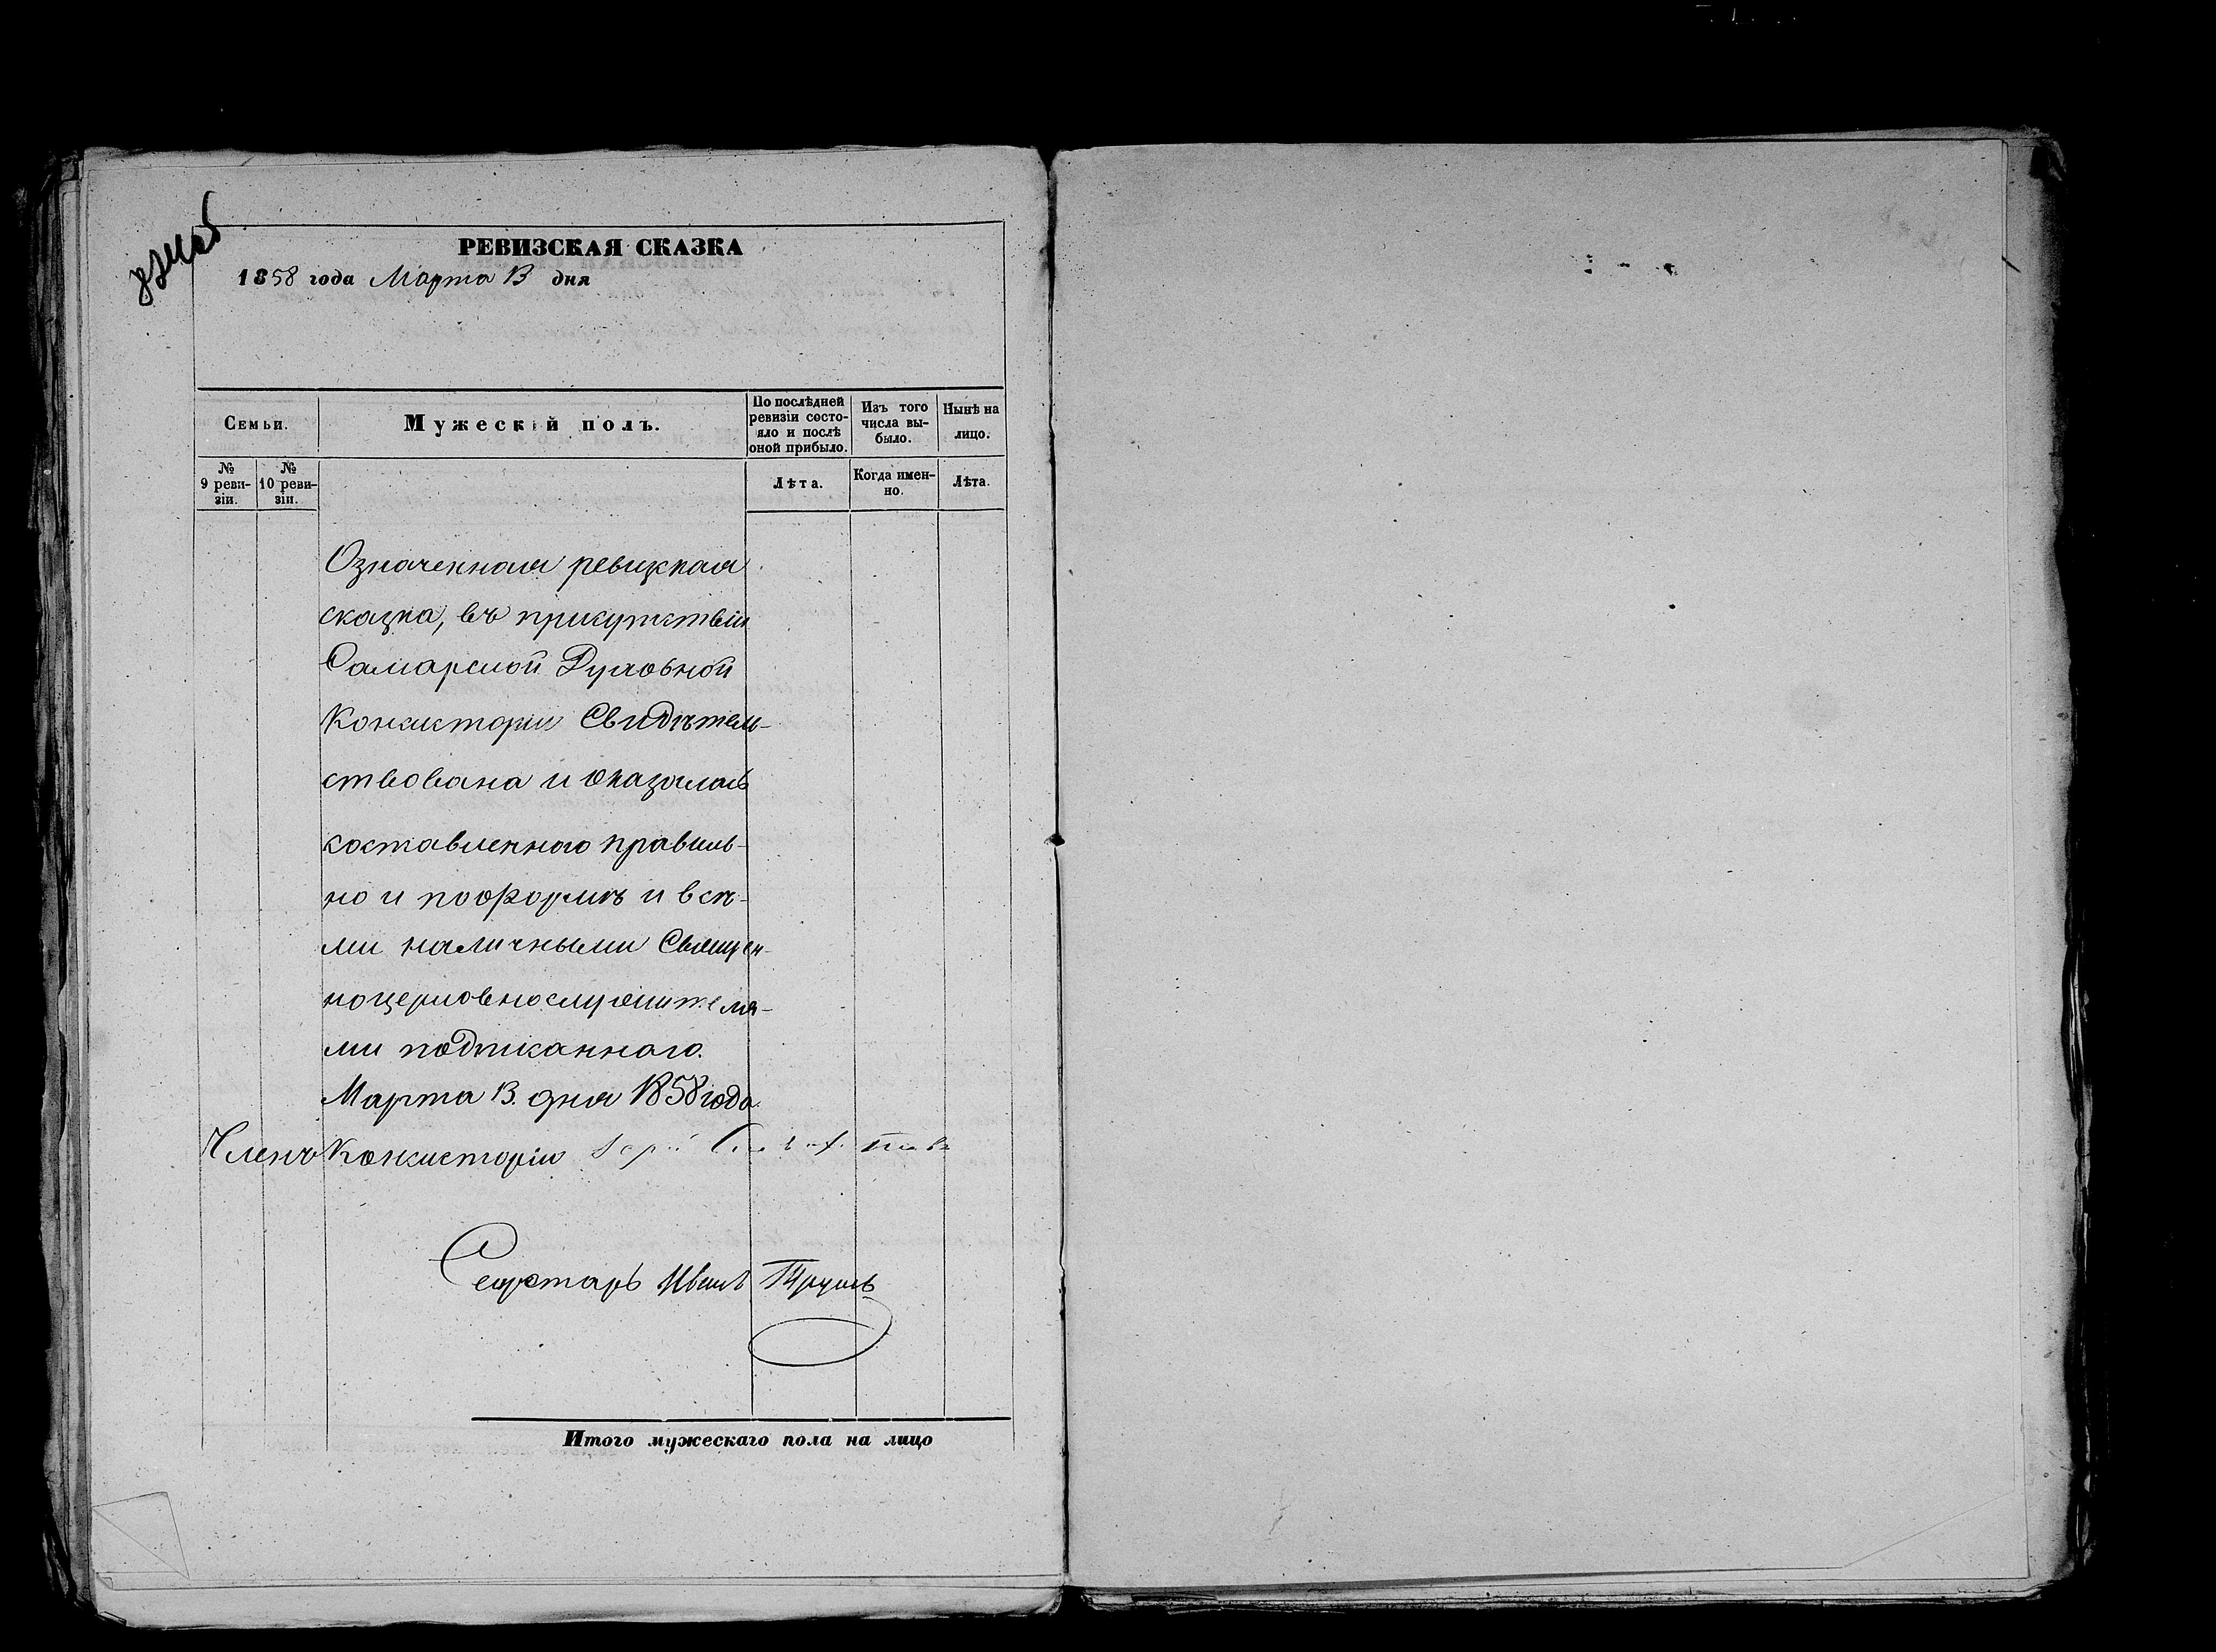 РЕВИЗСКАЯ СКАЗКА
1858 года Марта 13 дня
Семьи.
Мужескій полъ.
По послѣдней ревизіи состояло и послѣ оной прибыло.
Изъ того числа выбыло.
Нынѣ на лицо.
№ 9 ревизіи.
№ 10 ревизіи.
Лѣта.
Когда именно.
Лѣта.
Означенная ревизкая
сказка, въ присутствіи
Самарской Духовной
Консисторіи Свидѣтель-
ствована и оказалась
составленною правиль-
но и по формѣ и всѣ-
ми наличными Священ-
ноцерковнослужителя-
ми подписанною.
Марта 13. дня 1858 года.
Членъ Консисторіи
Секретарь Иванъ
Итого мужескаго пола на лицо